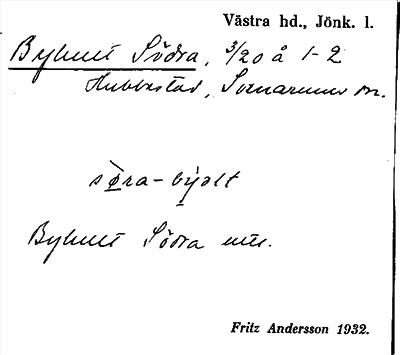 Västra hd., Jönk. l.
Byhult Södra, 3/20 å 1-2
Hubbestad, Svenarums sn.
sø̀ra-býalt
Byhult Södra
Fritz Andersson 1932.